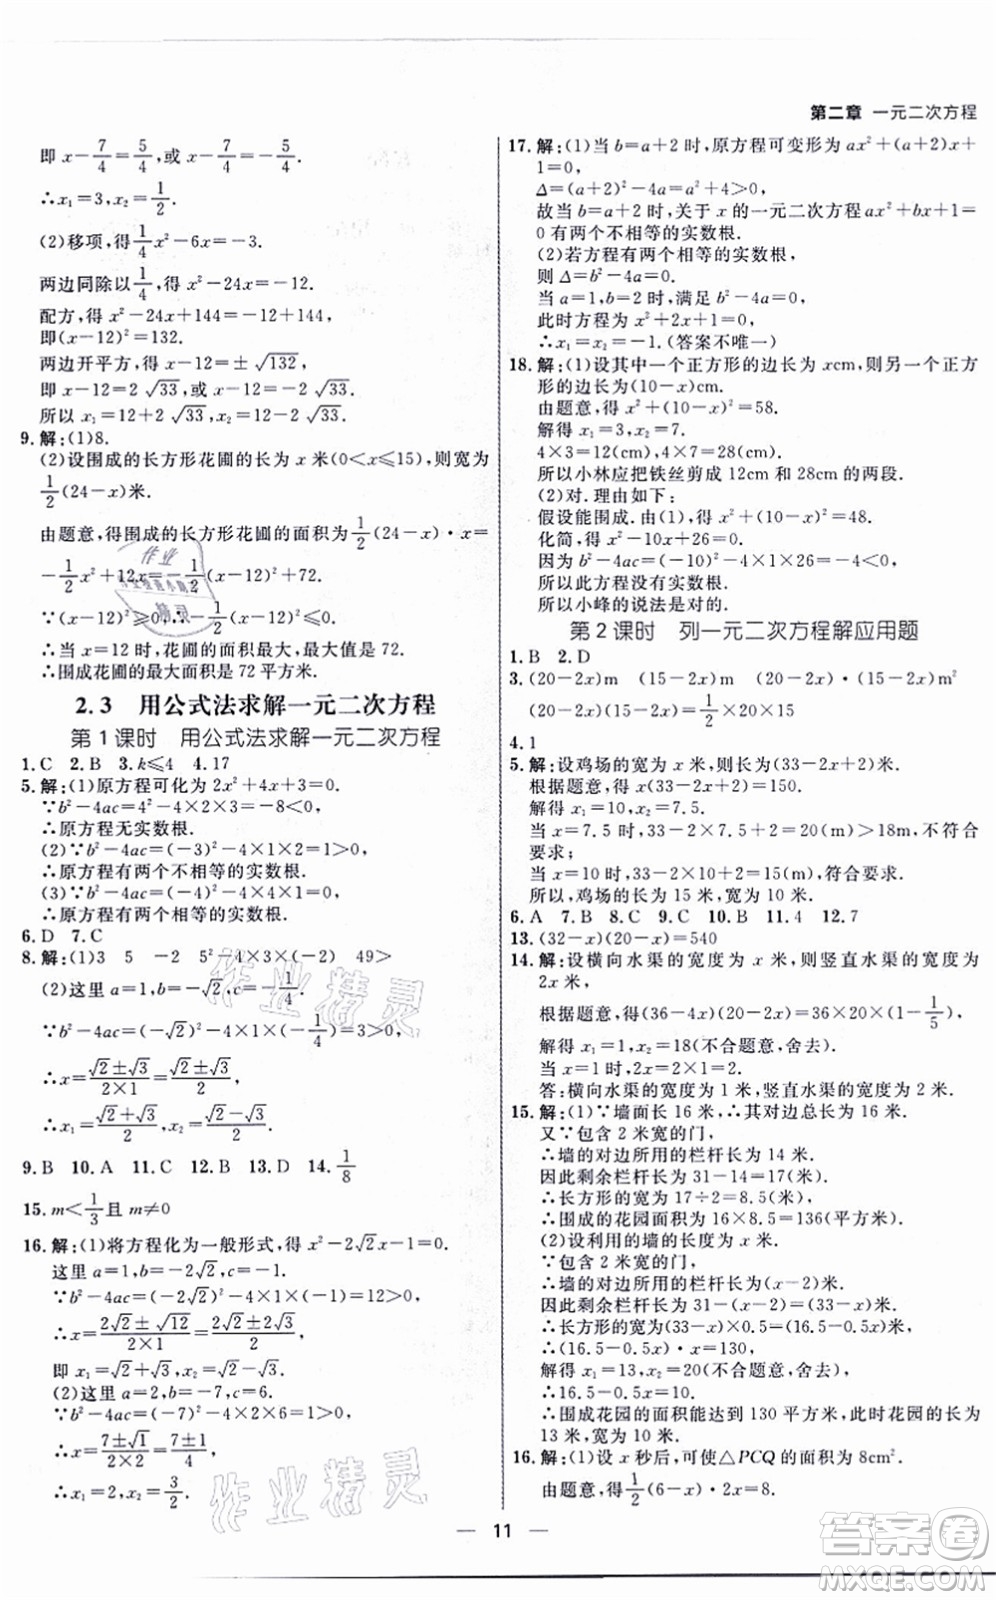 第二章 一元二次方程
即 x-7/4=5/4,或 x-7/4=-5/4.
∴x₁=3,x₂=1/2.
(2)移项,得1/4x²-6x=-3.
两边同除以1/4,得 x²-24x=-12.
配方,得 x²-24x+144=-12+144,
即(x-12)²=132.
两边开平方,得 x-12=±√132,
即 x-12=2√33,或 x-12=-2√33.
所以 x₁=12+2√33,x₂=12-2√33.
9. 解:(1)8.
(2)设围成的长方形花圃的长为 x 米(0<x≤15),则宽为
1/2(24-x)米.
由题意,得围成的长方形花圃的面积为1/2(24-x)·x=
-1/2x²+12x=-1/2(x-12)²+72.
∵(x-12)²≥0,∴-1/2(x-12)²≤0.
∴当 x=12 时,花圃的面积最大,最大值是 72.
∴围成花圃的最大面积是 72 平方米.
2.3 用公式法求解一元二次方程
第 1 课时 用公式法求解一元二次方程
1. C 2. B 3. k≤4 4. 17
5. 解:(1)原方程可化为 2x²+4x+3=0.
∵b²-4ac=4²-4×2×3=-8<0,
∴原方程无实数根.
(2)∵b²-4ac=(-3)²-4×1×2=1>0,
∴原方程有两个不相等的实数根.
(3)∵b²-4ac=(-6)²-4×1×9=0,
∴原方程有两个相等的实数根.
6. D 7. C
8. 解:(1)3 5 -2 5²-4×3×(-2) 49>
(2)这里 a=1,b=-√2,c=-1/4.
∵b²-4ac=(-√2)²-4×1×(-1/4)=3>0,
∴x=(√2±√3)/(2×1)=(√2±√3)/2,
∴x₁=(√2+√3)/2,x₂=(√2-√3)/2.
9. B 10. A 11. C 12. B 13. D 14. 1/8
15. m<1/3且 m≠0
16. 解:(1)将方程化为一般形式,得 x²-2√2x-1=0.
这里 a=1,b=-2√2,c=-1.
∵b²-4ac=(-2√2)²-4×1×(-1)=12>0,
∴x=(2√2±√12)/(2×1)=(2√2±2√3)/2,
即 x₁=√2+√3,x₂=√2-√3.
(2)这里 a=2,b=-7,c=6.
∵b²-4ac=(-7)²-4×2×6=1>0,
∴x=(7±√1)/(2×2)=(7±1)/4,
∴x₁=2,x₂=3/2.
17. 解:(1)当 b=a+2 时,原方程可变形为 ax²+(a+2)x+
1=0.
Δ=(a+2)²-4a=a²+4>0,
故当 b=a+2 时,关于 x 的一元二次方程 ax²+bx+1=
0 有两个不相等的实数根.
(2)若方程有两个相等的实数根,
则 Δ=b²-4a=0.
当 a=1,b=2 时,满足 Δ=0,
此时方程为 x²+2x+1=0,
∴x₁=x₂=-1.(答案不唯一)
18. 解:(1)设其中一个正方形的边长为 xcm,则另一个正方
形的边长为(10-x)cm.
由题意,得 x²+(10-x)²=58.
解得 x₁=3,x₂=7.
4×3=12(cm),4×7=28(cm).
所以小林应把铁丝剪成 12cm 和 28cm 的两段.
(2)对.理由如下:
假设能围成.由(1),得 x²+(10-x)²=48.
化简,得 x²-10x+26=0.
因为 b²-4ac=(-10)²-4×1×26=-4<0,
所以此方程没有实数根.
所以小峰的说法是对的.
第 2 课时 列一元二次方程解应用题
1. B 2. D
3. (20-2x)m (15-2x)m (20-2x)(15-2x)m²
(20-2x)(15-2x)=1/2×20×15
4. 1
5. 解:设鸡场的宽为 x 米,则长为(33-2x+2)米.
根据题意,得 x(33-2x+2)=150.
解得 x₁=10,x₂=7.5.
当 x=7.5 时,33-2×7.5+2=20(m)>18m,不符合
要求;
当 x=10 时,33-2×10+2=15(m)<18m.
所以,鸡场的长为 15 米,宽为 10 米.
6. A 7. B 8. C 9. C 10. B 11. 4 12. 7
13. (32-x)(20-x)=540
14. 解:设横向水渠的宽度为 x 米,则竖直水渠的宽度为
2x 米,
根据题意,得(36-4x)(20-2x)=36×20×(1-1/5),
解得 x₁=1,x₂=18(不合题意,舍去).
当 x=1 时,2x=2×1=2.
答:横向水渠的宽度为 1 米,竖直水渠的宽度为 2 米.
15. 解:(1)∵墙面长 16 米,∴其对边总长为 16 米.
又∵包含 2 米宽的门,
∴墙的对边所用的栏杆长为 14 米.
因此剩余栏杆长为 31-14=17(米),
∴长方形的宽为 17÷2=8.5(米),
∴围成的花园面积为 16×8.5=136(平方米).
(2)设利用的墙的长度为 x 米,
∵包含 2 米宽的门,
∴墙的对边所用的栏杆长为(x-2)米,
因此剩余栏杆长为 31-(x-2)=33-x(米),
∴长方形的宽为(33-x)×0.5=(16.5-0.5x)米,
解得 x₁=13,x₂=20(不合题意,舍去),
∴16.5-0.5x=10.
∴围成花园的面积能达到 130 平方米,此时花园的长为
13 米,宽为 10 米.
16. 解:(1)设 x 秒后,可使△PCQ 的面积为 8cm².
由题意,得1/2(6-x)·2x=8,
11
作业
精灵
作业精灵
作业精灵
答案圈
MXQE.COM